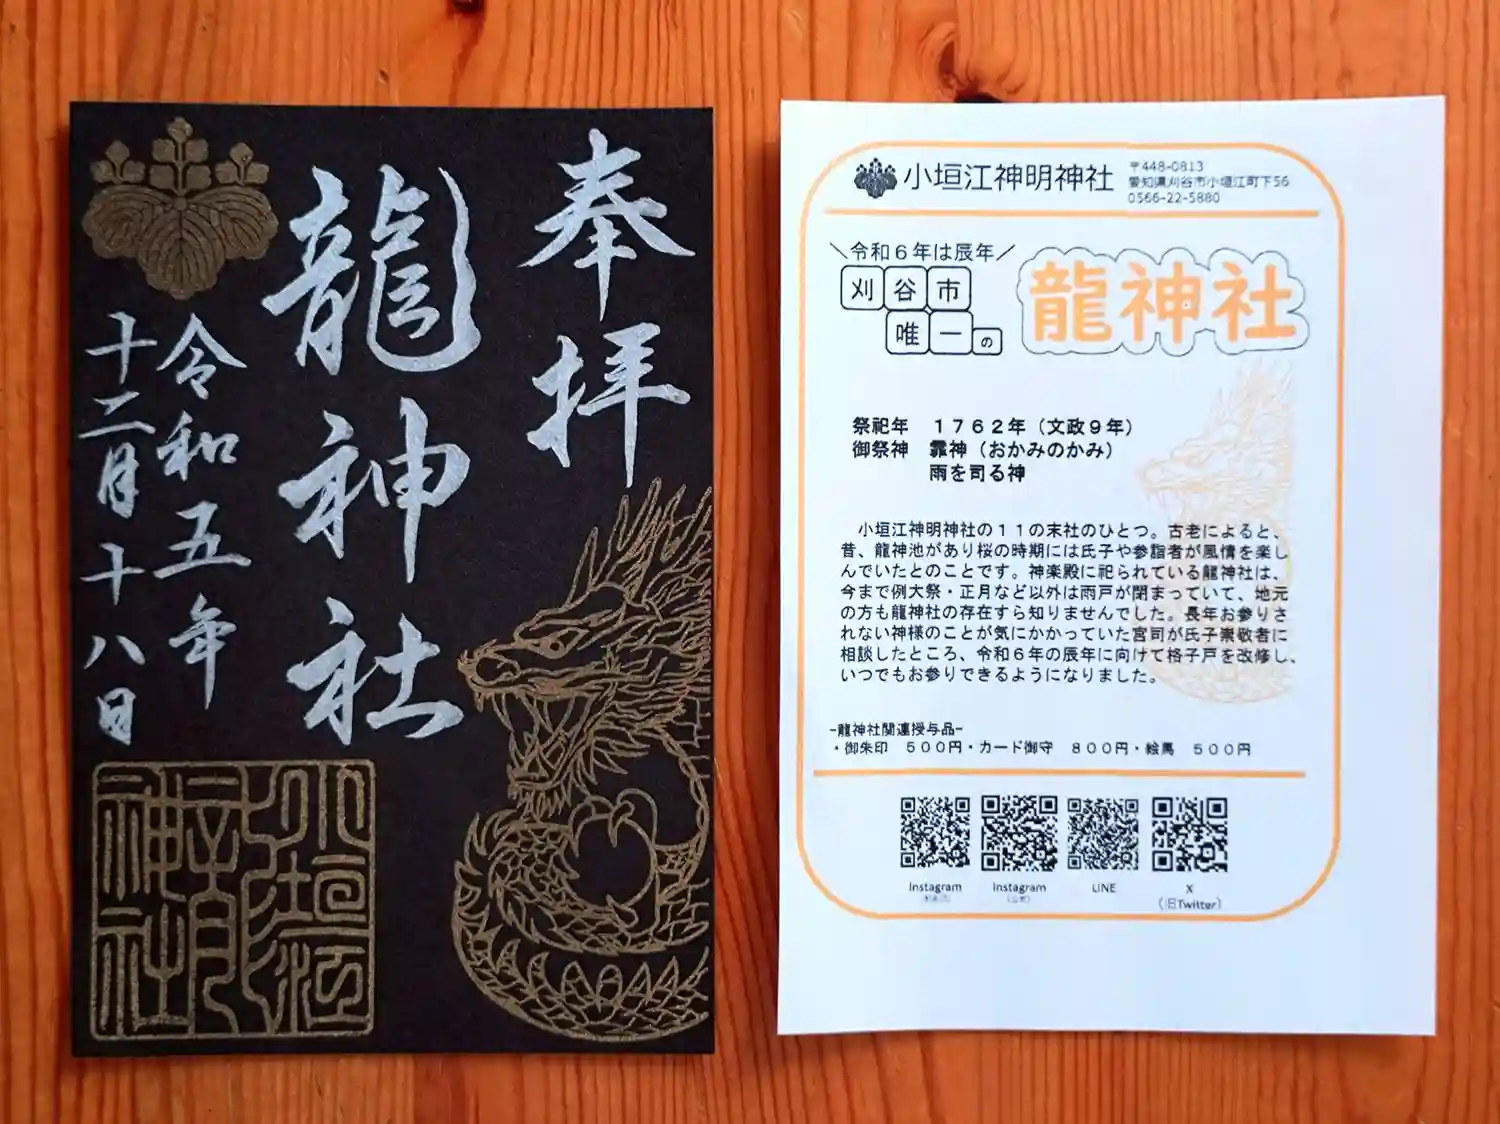 奉拝
龍神社
令和五年
十二月十八日
小垣江
龍神社
小垣江神明神社
〒448-0813
愛知県刈谷市小垣江町下56
0566-22-5880
＼令和６年は辰年／
刈谷市
唯一の
龍神社
祭祀年　１７６２年（文政９年）
御祭神　龗神（おかみのかみ）
雨を司る神
小垣江神明神社の１１の末社のひとつ。古老によると、
昔、龍神池があり桜の時期には氏子や参詣者が風情を楽し
んでいたとのことです。神楽殿に祀られている龍神社は、
今まで例大祭・正月など以外は雨戸が閉まっていて、地元
の方も龍神社の存在すら知りませんでした。長年お参りさ
れない神様のことが気にかかっていた宮司が氏子崇敬者に
相談したところ、令和６年の辰年に向けて格子戸を改修し、
いつでもお参りできるようになりました。
-龍神社関連授与品-
・御朱印　５００円・カード御守　８００円・絵馬　５００円
Instagram
Instagram
（公式）
LINE
X
（旧Twitter）